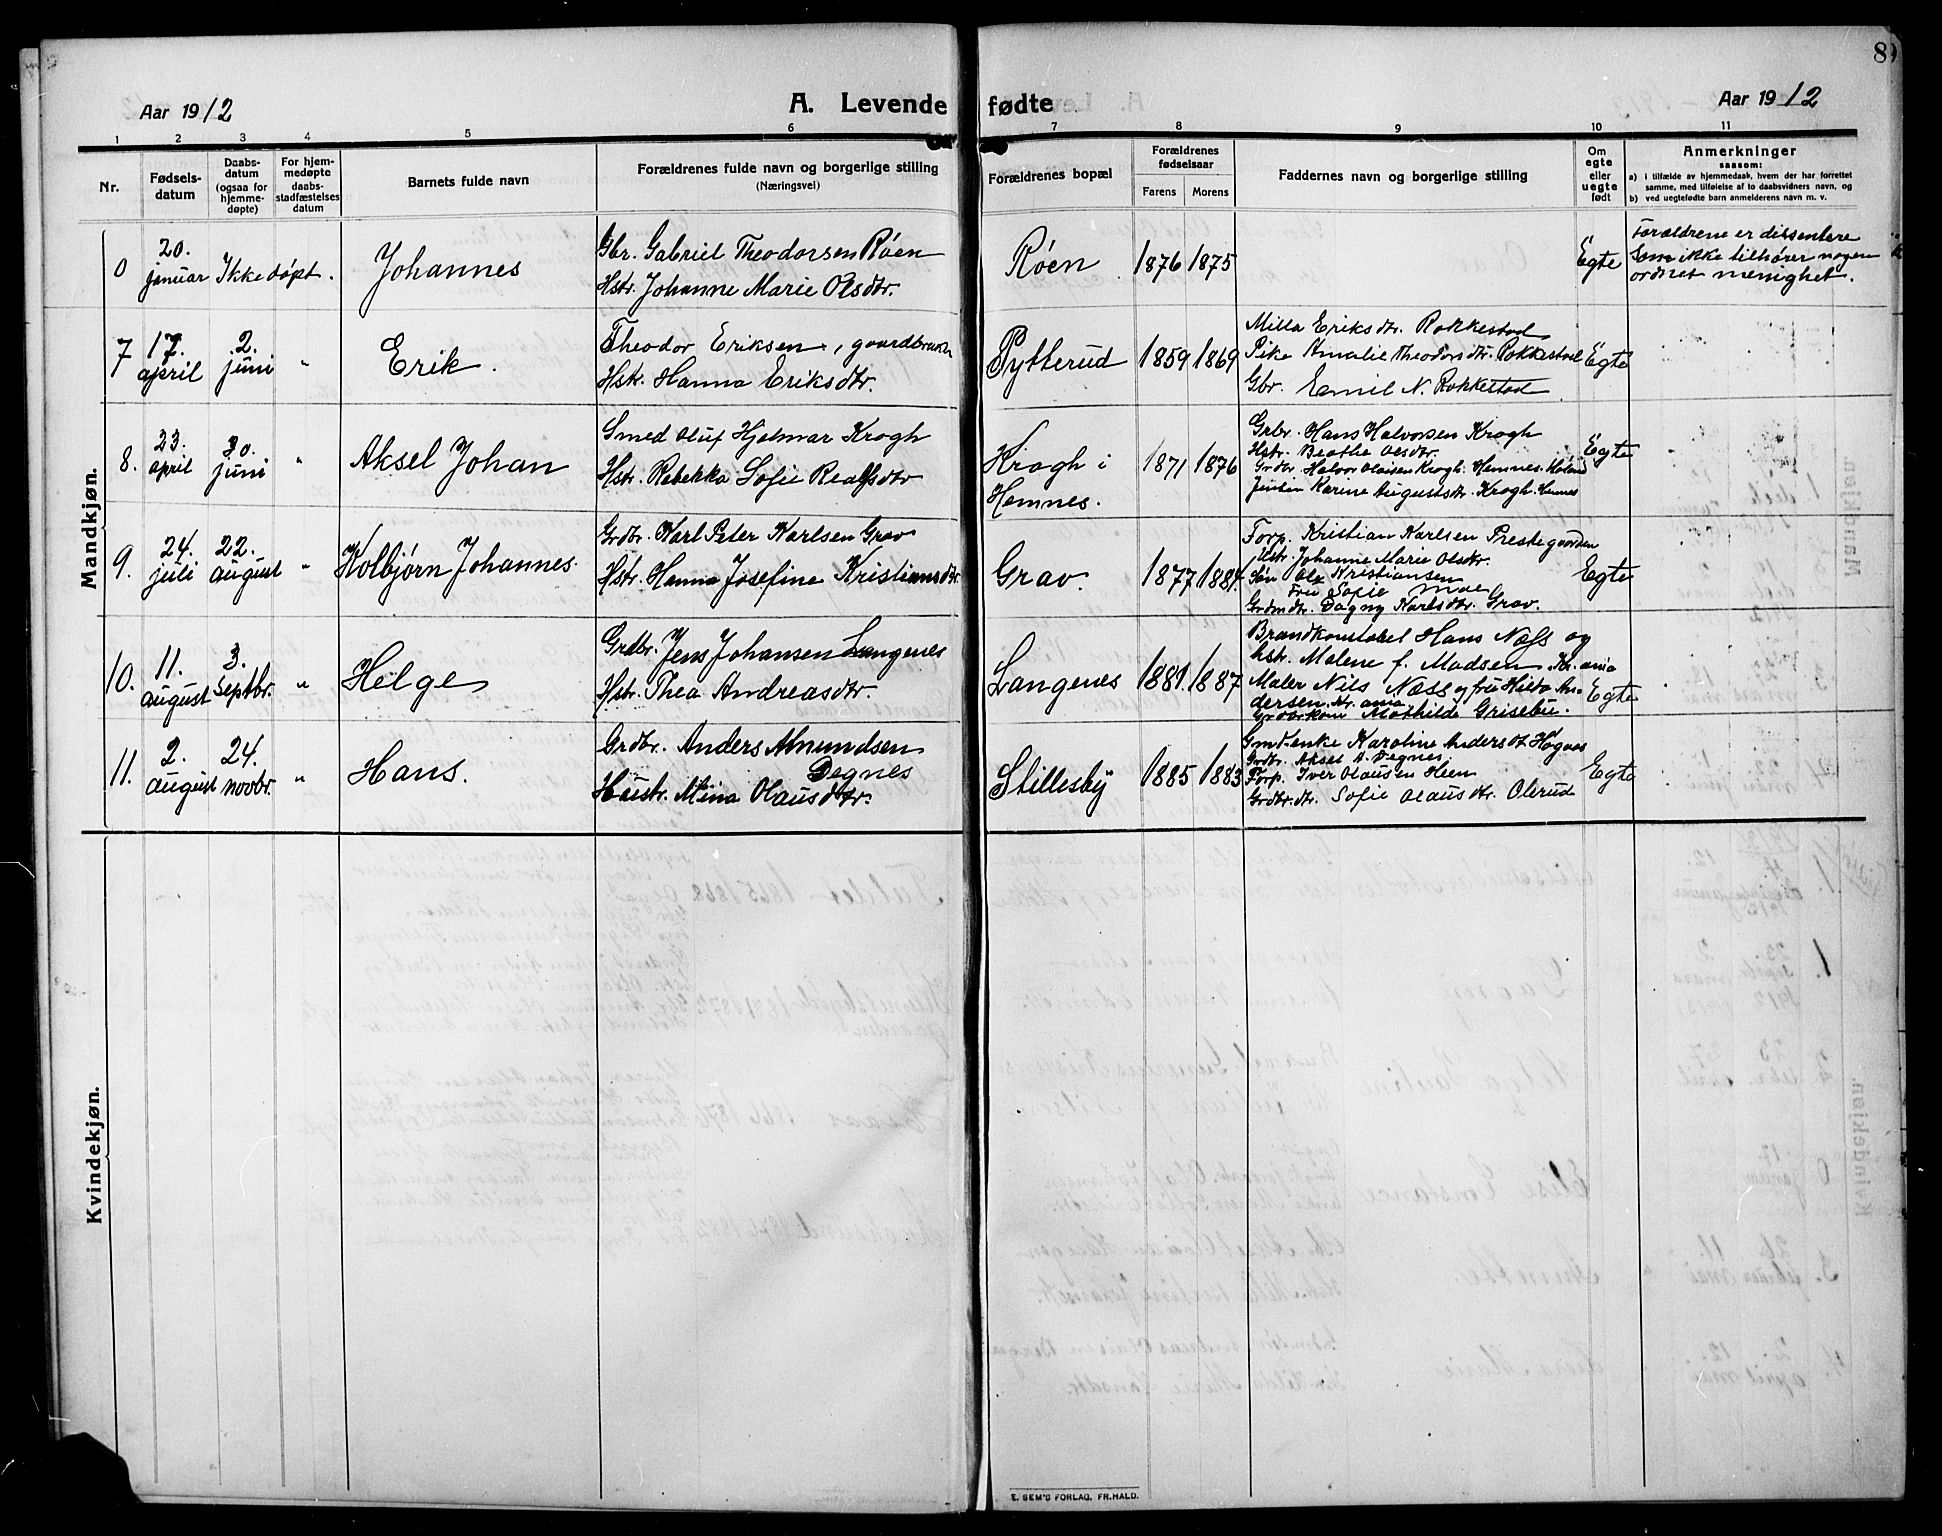 8
Aar 1912
A. Levende fødte
Aar 1912
1 2 3 4 5 6 7 8 9 10 11
Nr.
Fødsels-
datum
Daabs-
datum
(ogsaa for
hjemme-
døpte)
For hjem-
medøpte
daabs-
stadfæstelses
datum
Barnets fulde navn
Forældrenes fulde navn og borgerlige stilling
(Næringsvei)
Forældrenes bopæl
Forældrenes
fødselsaar
Farens Morens
Faddernes navn og borgerlige stilling
Om
egte
eller
uegte
født
Anmerkninger
saasom:
a) i tilfælde av hjemmedaab, hvem der har forrettet
samme, med tilføielse af to daabsvidners navn, og
b) ved uegtefødte barn anmelderens navn m. v.
Mandkjøn.
0
20.
januar
Ikke døpt.
Johannes
Gbr. Gabriel Theodorsen Røen
Hstr. Johanne Marie Olsdtr.
Røen
1876 1875
Egte
Forældrene er dissentere
Som ikke tilhører nogen
ordnet menighet.
7
17.
april
2.
juni
"
Erik.
Theodor Eriksen, gaardbruker
Hstr. Hanna Eriksdtr.
Pytterud
1859 1869
Milla Eriksdtr. Rokkestad
Pike Amalie Theodorsdtr. Rokkestad
Gbr. Emil N. Rokkestad
Egte
8.
23.
april
30.
juni
"
Aksel Johan
Smed Oluf Hjalmar Krogh
Hstr. Rebekka Sofie
Krogh i
Hemnes.
1871 1876
Grbr. Hans Halvorsen Krogh
Hstr. Beathe Olsdtr.
Grdbr. Halvor Olaisen Krogh. Hemnes.
Karine Augustsdtr. Krogh.
Egte
9.
24.
juli
22.
august
"
Kolbjørn Johannes.
Grdbr. Karl Peter Karlsen Grav
Hstr. Hanna Josefine Kristiansdtr.
Grav.
1877 1884.
Forp. Kristian Karlsen Prestegaarden
Hstr. Johanne Marie Olsdtr.
Søn Ole Kristiansen
Fru Sofie Moe
Grdmdtr. Dagny Karlsdtr. Grav.
Egte
10.
11.
august
3.
Septbr.
"
Helge
Grdbr. Jens Johansen Langenes
Hstr. Thea Andreasdtr.
Langenes
1881. 1887
Brandkonstabel Hans Næss og
hstr. Malene f. Madsen. Kr.ania
Maler Nils Næss og fru Hilda An-
dersen. Kr.ania
Grdbrkone Mathilde Grisebu.
Egte
11.
2.
august
24.
novbr.
"
Hans.
Grdbr. Anders Amundsen
Degnes
Hustr. Mina Olausdtr.
Stillesby
1885 1883
Gmd.enke Karoline Andersdt.
Grdbr. Aksel A. Degnes
Forp. Iver Olausen Heen
Grdbr.dtr. Sofie Olausdtr. Olerud
Egte
Kvindekjøn.
E. SEM'S FORLAG, FR.HALD.